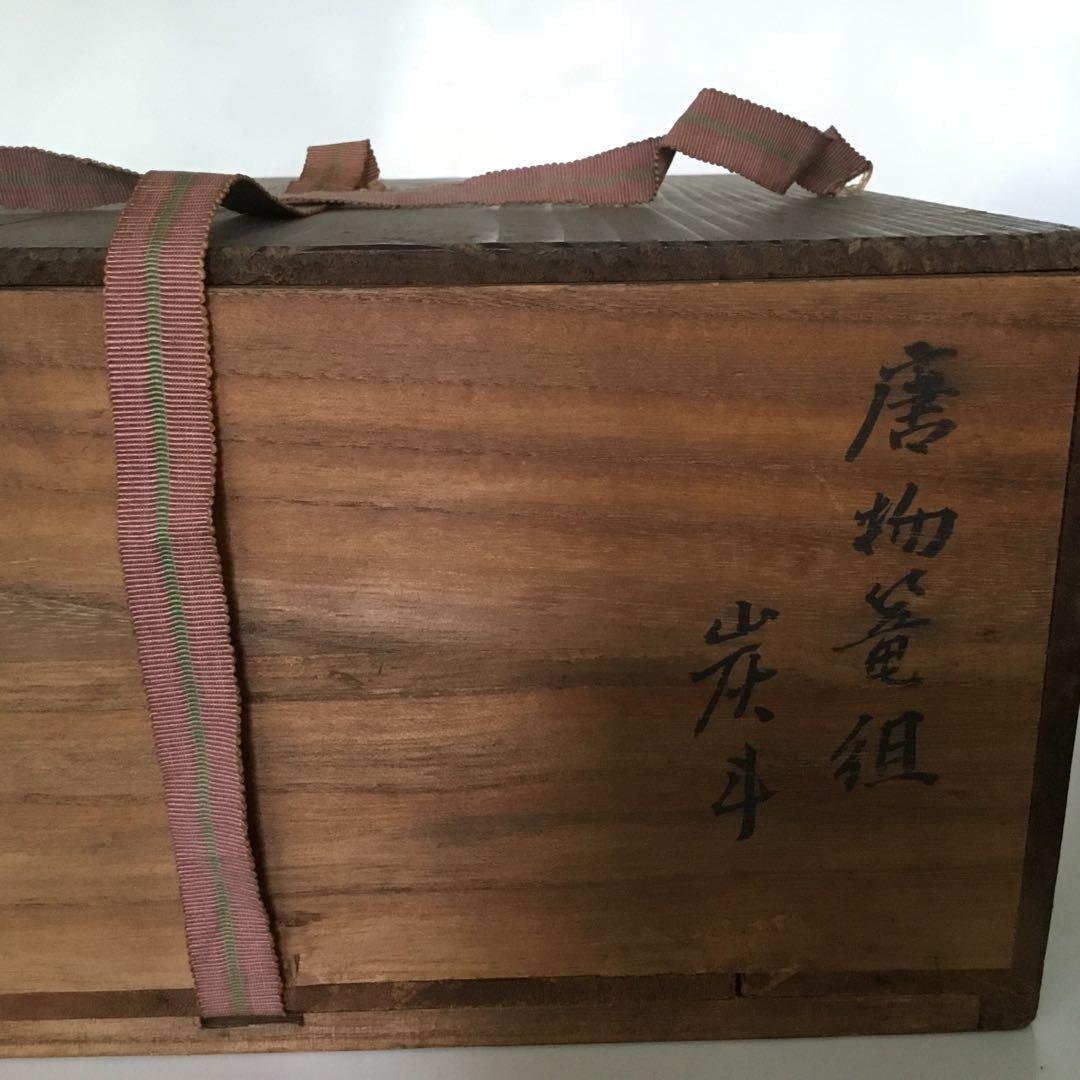 唐物篭組
炭斗